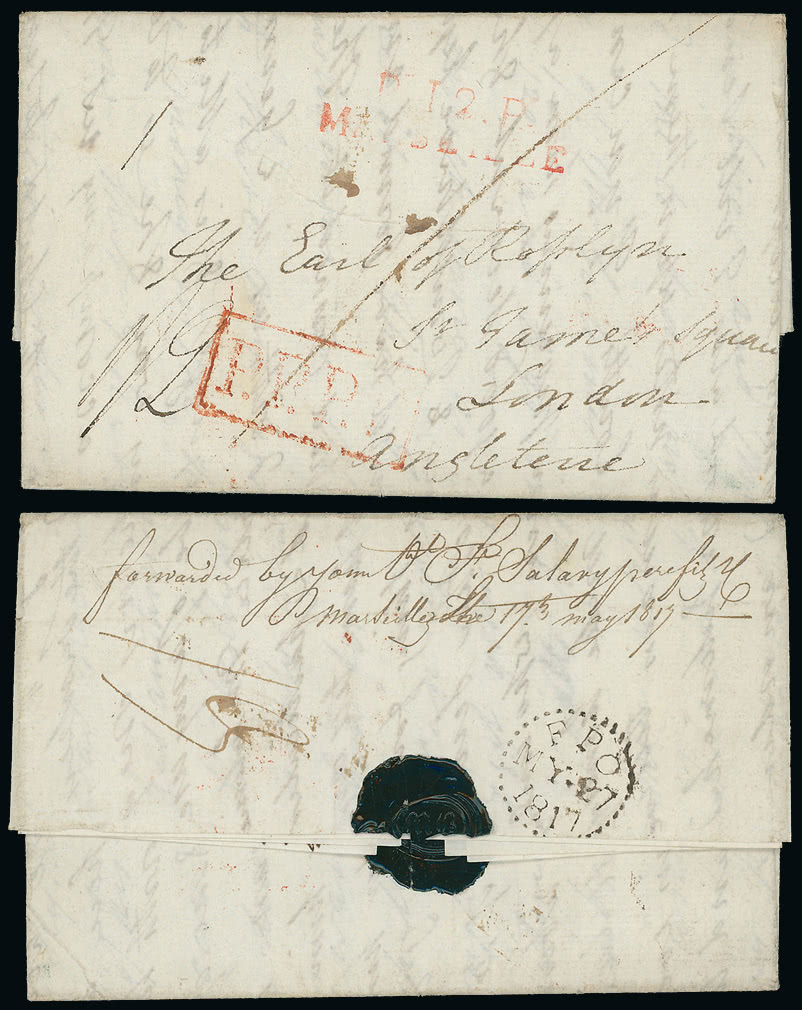 P. 12. P.
MARSEILLE
The Earl of Rosslyn
St James Square
1/2
P.P.P.P.
London
Angleterre
forwarded by your St
Marseilles the 17th may 1817
FPO
MY.27
1817